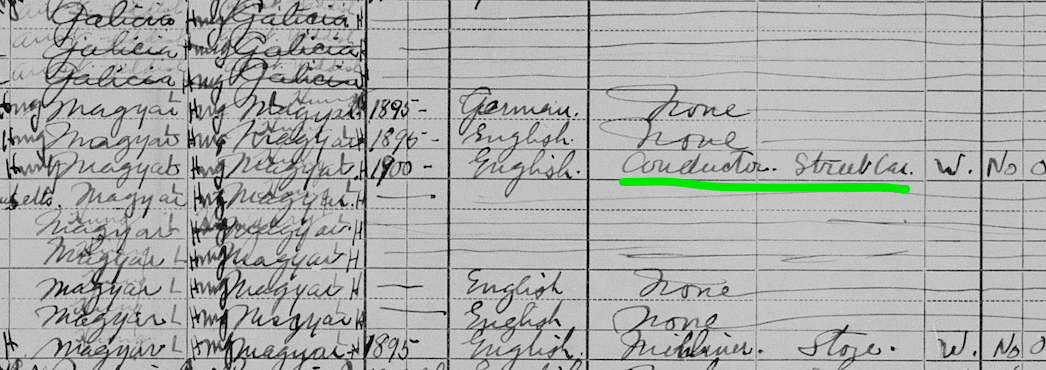 Galicia Hng Galicia
Galicia Hng Galicia
Galicia Hng Galicia
Hng Magyar Hng Magyar 1895 - German. None
Hng Magyar Hng Magyar 1895 - English. None
Magyar Hng Magyar 1900 - English. Conductor. Street Car. W. No 0
Magyar Hng Magyar H
Magyar Hng Magyar H
Magyar L Hng Magyar H
Magyar L Hng Magyar H English None
Magyar L Hng Magyar English None
H Magyar L Hng Magyar H 1895 English. Milliner. Store. W. No 0